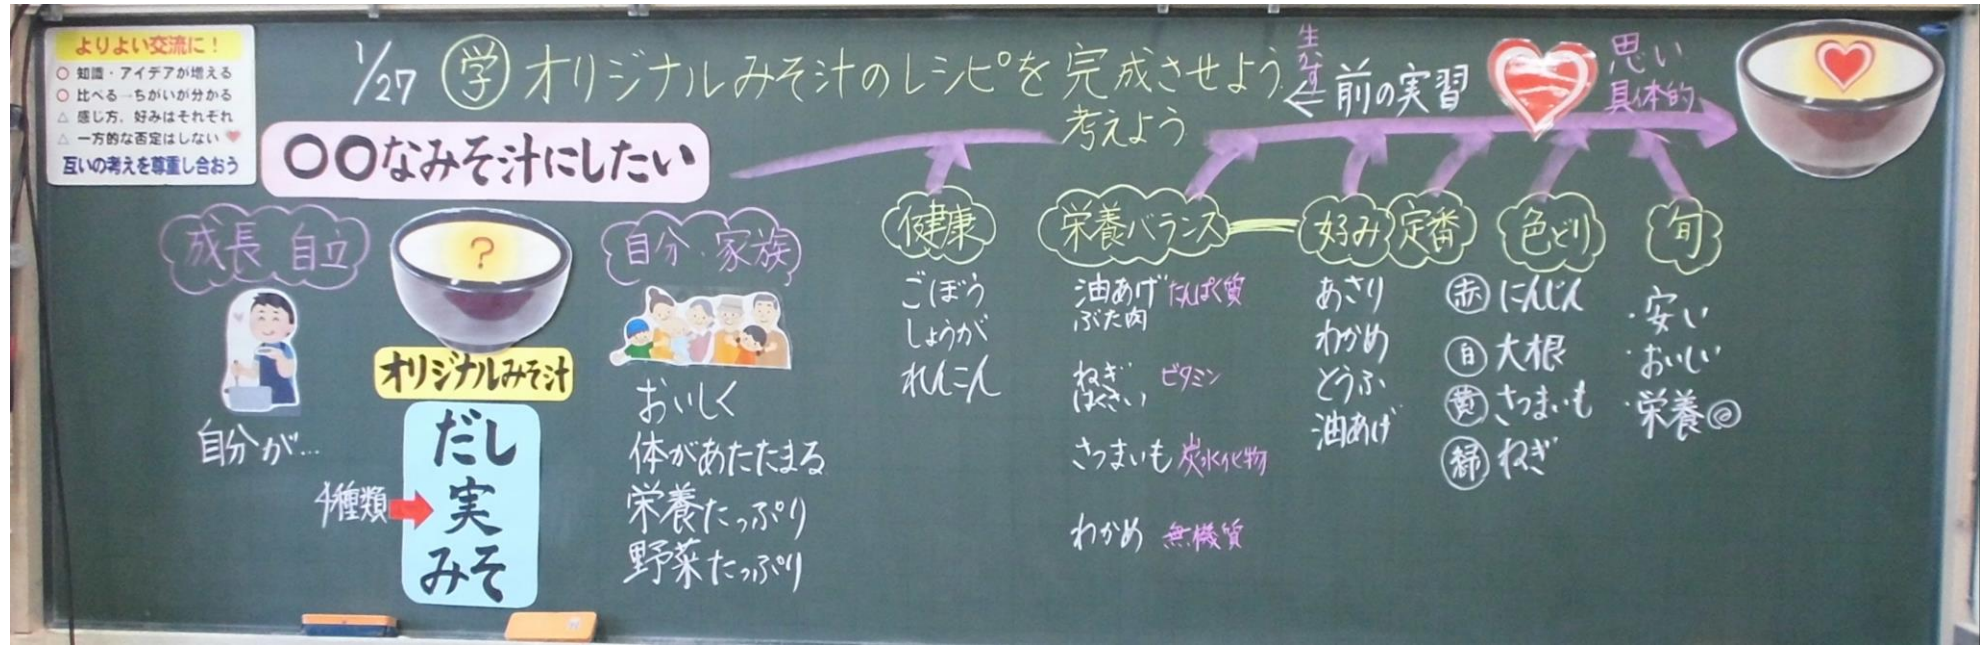 よりよい交流に！
○ 知識・アイデアが増える
○ 比べる→ちがいが分かる
△ 感じ方、好みはそれぞれ
△ 一方的な否定はしない
互いの考えを尊重し合おう
1/27 学 オリジナルみそ汁のレシピを完成させよう
考えよう
生かす
←前の実習
思い
具体的
○○なみそ汁にしたい
成長 自立
自分が…
?
オリジナルみそ汁
4種類
だし
実
みそ
自分・家族
おいしく
体があたたまる
栄養たっぷり
野菜たっぷり
健康
ごぼう
しょうが
れんこん
栄養バランス
油あげ たんぱく質
ぶた肉
ねぎ ビタミン
はくさい
さつまいも 炭水化物
わかめ 無機質
好み 定番
あさり
わかめ
とうふ
油あげ
色どり
赤 にんじん
白 大根
黄 さつまいも
緑 ねぎ
旬
・安い
・おいしい
・栄養◎